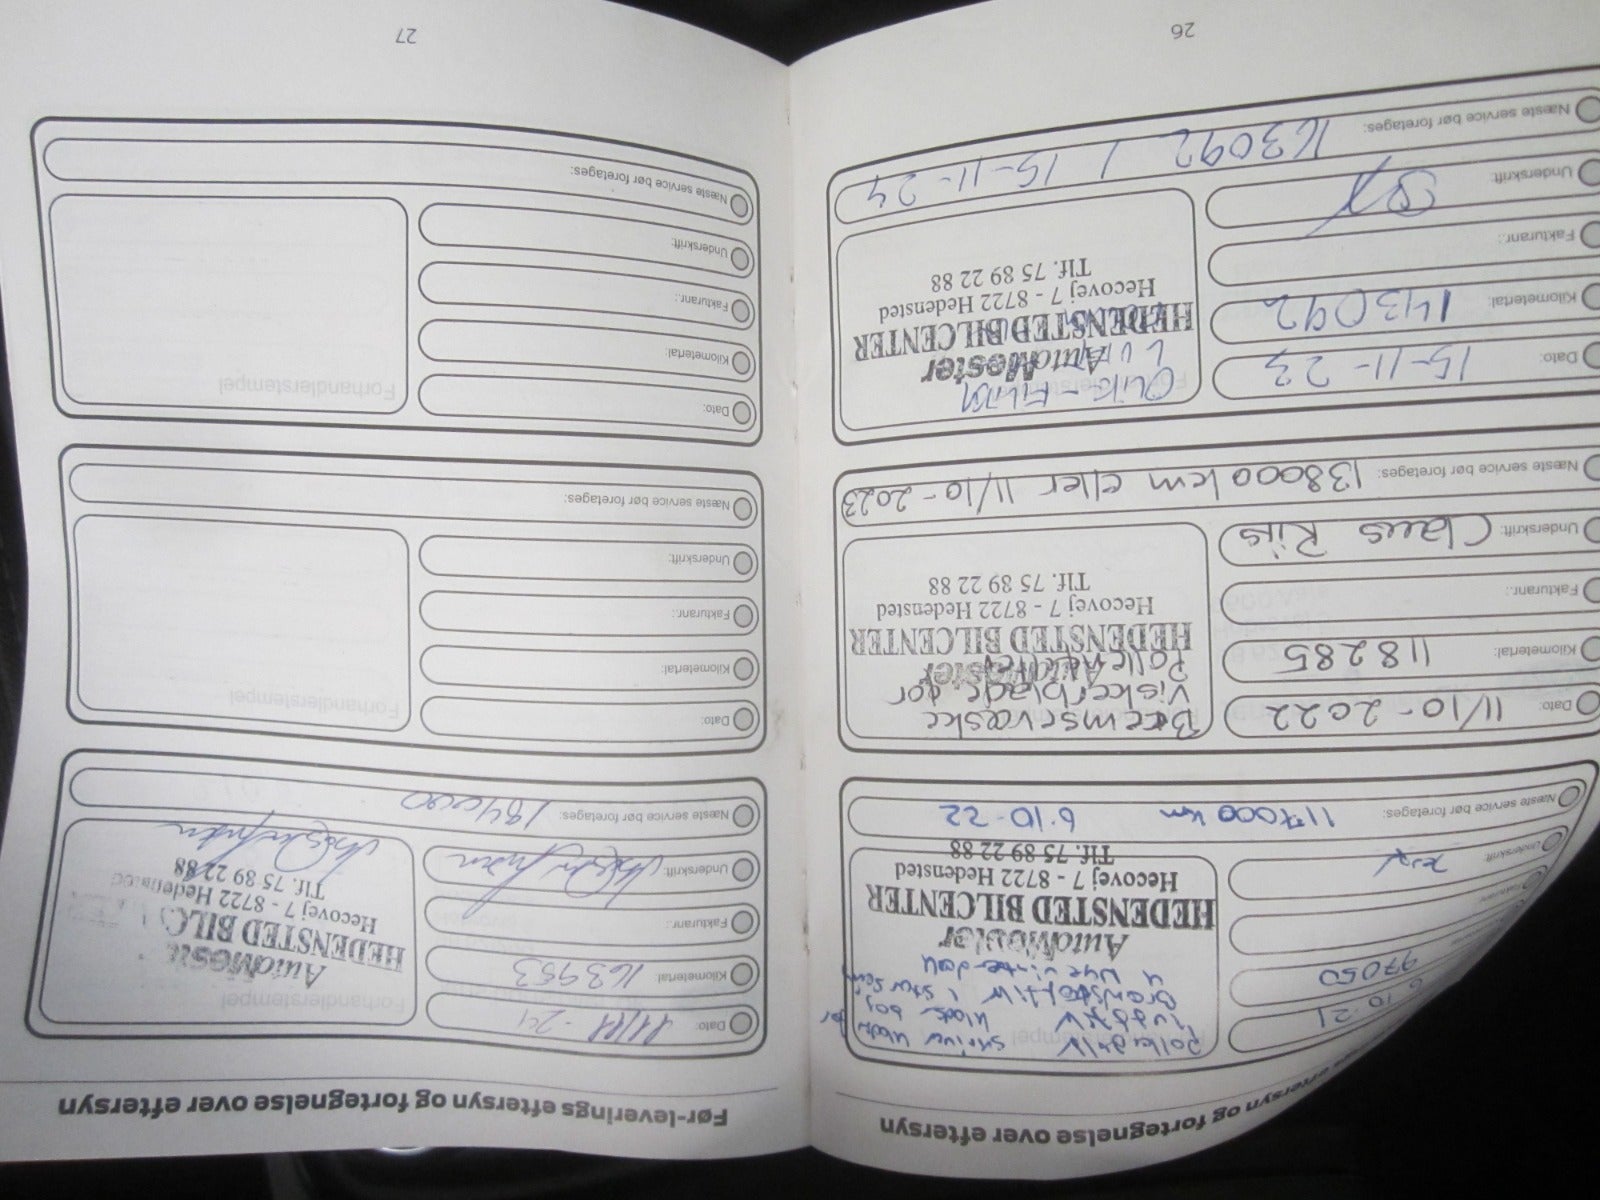 eftersyn og fortegnelse over eftersyn
6 10 21
97050
Pollenfilt
Luftfilt
4 nye vinterdæk
AutoMester
HEDENSTED BILCENTER
Hecovej 7 - 8722 Hedensted
Tlf. 75 89 22 88
Underskrift:
Næste service bør foretages: 117000 km 6-10-22
Dato: 11/10-2022
Kilometertal: 118285
Fakturanr.:
Underskrift: Claus Riis
Bremsevæske
Viskerblade for
Pollenfilter
AutoMester
HEDENSTED BILCENTER
Hecovej 7 - 8722 Hedensted
Tlf. 75 89 22 88
Næste service bør foretages: 138000 km eller 11/10-2023
Dato: 15-11-23
Kilometertal: 143092
Fakturanr.:
Underskrift:
Olie-Filter
AutoMester
HEDENSTED BILCENTER
Hecovej 7 - 8722 Hedensted
Tlf. 75 89 22 88
Næste service bør foretages: 163092 / 15-11-24
26
Før-leverings eftersyn og fortegnelse over eftersyn
Dato: 11/11-24
Kilometertal: 163953
Fakturanr.:
Underskrift:
Forhandlerstempel
AutoMest
HEDENSTED BILC
Hecovej 7 - 8722 Hedensted
Tlf. 75 89 22 88
Næste service bør foretages: 184000
Dato:
Kilometertal:
Fakturanr.:
Underskrift:
Forhandlerstempel
Næste service bør foretages:
Dato:
Kilometertal:
Fakturanr.:
Underskrift:
Forhandlerstempel
Næste service bør foretages:
27